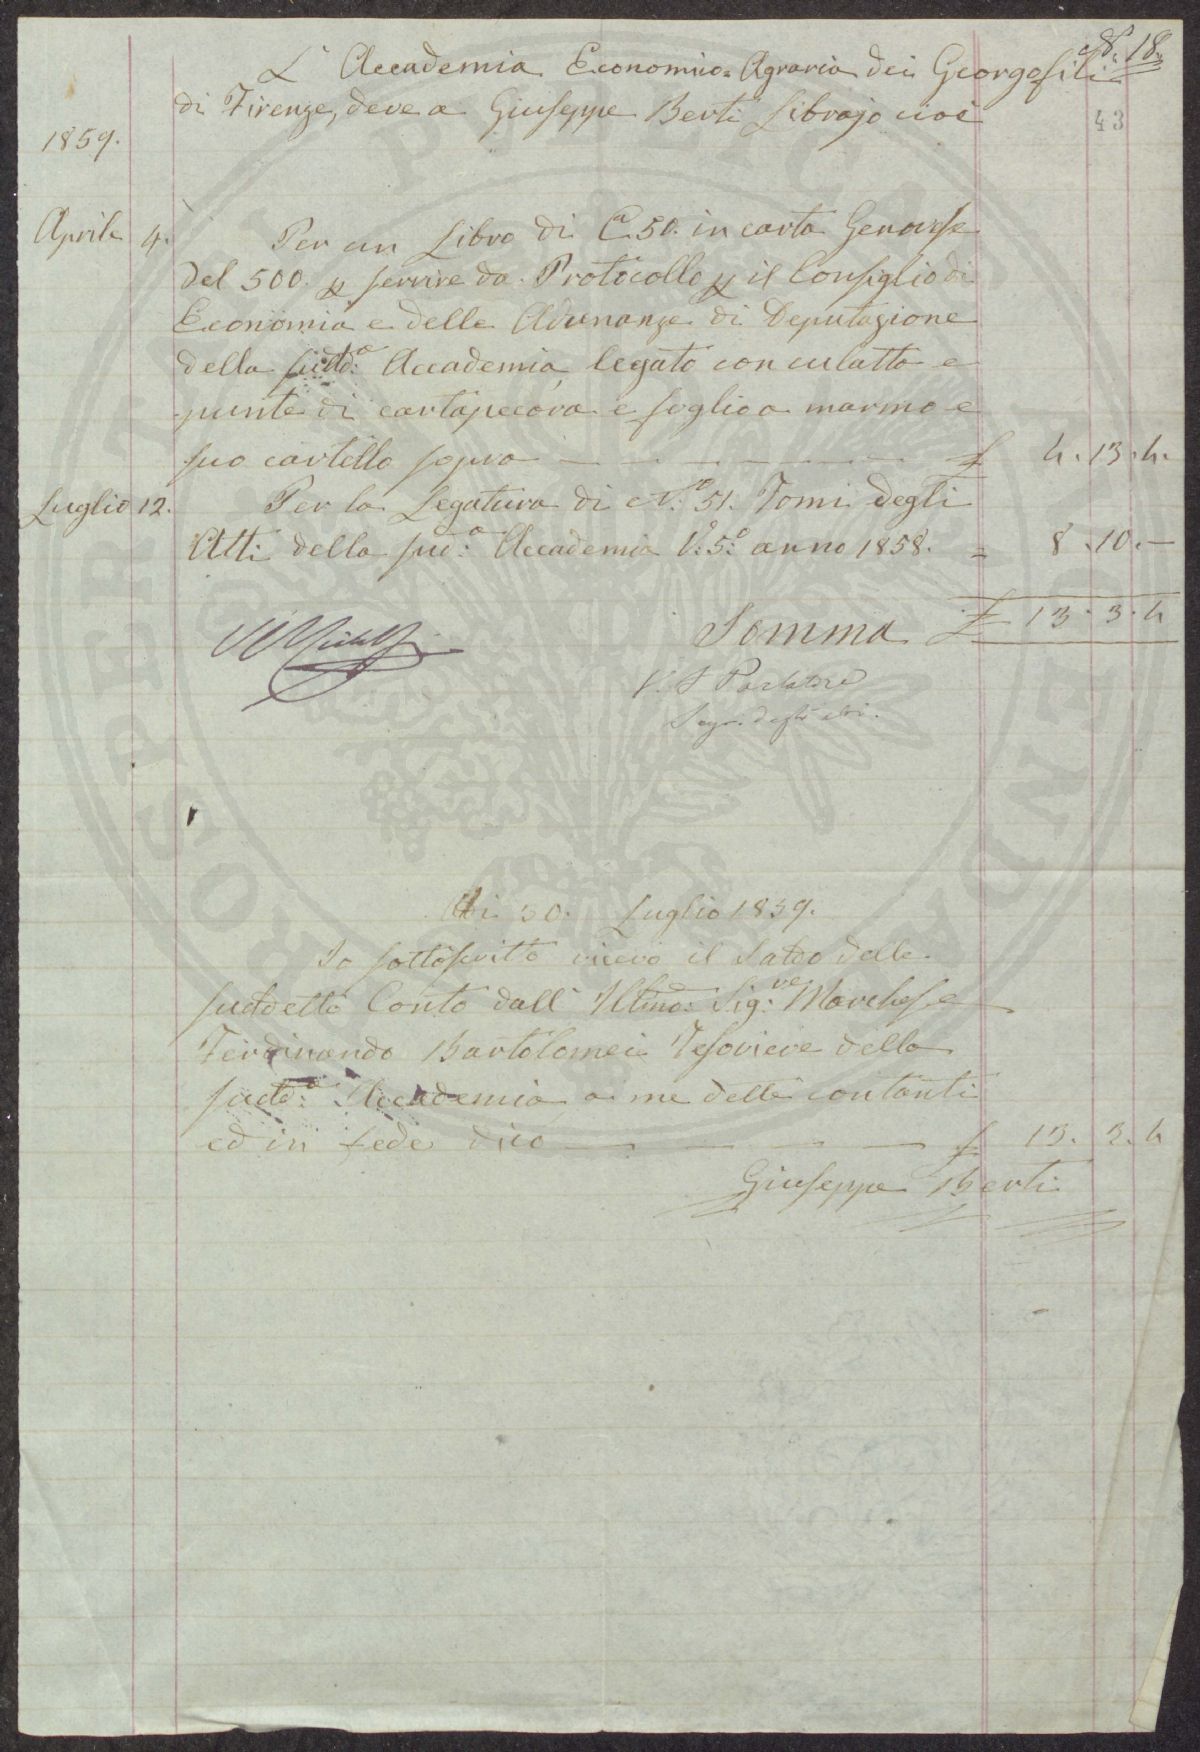 N.° 18.
L' Accademia Economico=Agraria dei Georgofili
di Firenze, deve a Giuseppe Berti Librajo cioè
43
1859.
Aprile 4. Per un Libro di C.a 50. in carta Genovese
del 500. p servire da Protocollo p il Consiglio di
Economia e delle Adunanze di Deputazione
della sudd.a Accademia, legato con culatta e
punte di cartapecora e foglio a marmo e
suo cartello sopra £ 4. 13. 4.
Luglio 12. Per la Legatura di N.o 51. Tomi degli
Atti della sud.a Accademia V. 5.o anno 1858. = 8. 10. —
Somma £ 13. 3. 4
V. F Parlatore
Segr. degli Atti.
Adi 30. Luglio 1859.
Io sottoscritto ricevo il Saldo delle
suddetto Conto dall' Illmo. Sig.re Marchese
Ferdinando Bartolomei Tesoriere della
sudd.a Accademia a me detti contanti
ed in fede dico £ 13. 3. 4
Giuseppe Berti